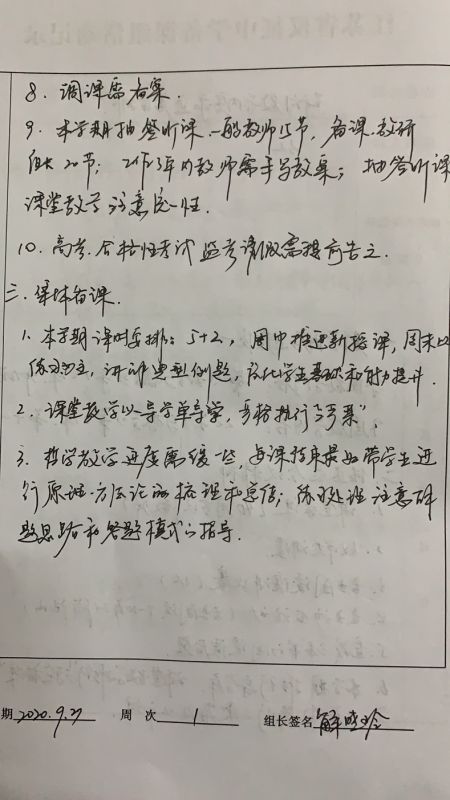 8. 调课需备案.
9. 本学期抽签听课.一般教师15节,备课.教研
组长20节; 工作3年内教师需手写教案; 抽签听课
课堂教学注意统一性.
10. 高考.合格性考试监考请假需提前告之.
三. 集体备课.
1. 本学期课时安排: 5+2, 周中推进新授课, 周末以
练习为主, 讲评典型例题, 强化学生基础和能力提升.
2. 课堂教学以导学单导学, 严格执行“学案”.
3. 哲学教学进度需缓一些, 每课结束最好带学生进
行原理.方法论的梳理和; 练习处理注意
题思路和答题模式的指导.
期 2020.9.27 周 次 1 组长签名 解晓玲